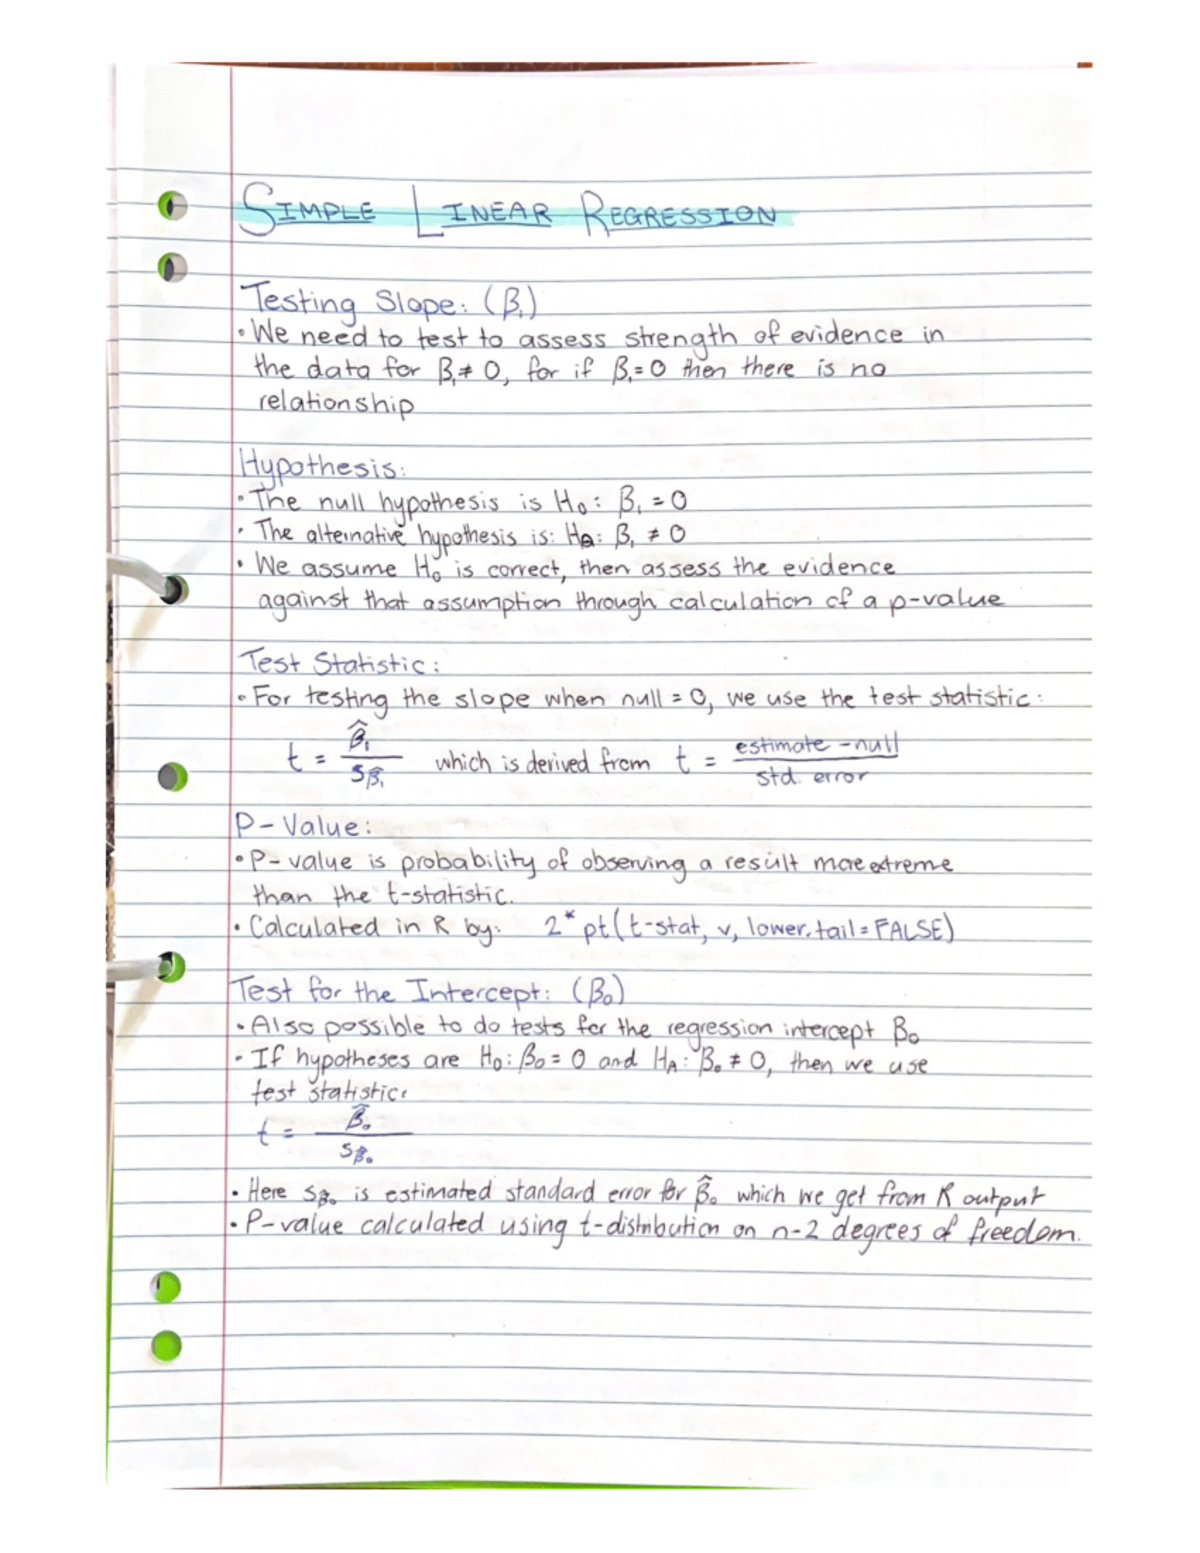 SIMPLE LINEAR REGRESSION
Testing Slope: (β₁)
• We need to test to assess strength of evidence in
the data for β₁ ≠ 0, for if β₁ = 0 then there is no
relationship
Hypothesis:
• The null hypothesis is H₀: β₁ = 0
• The alternative hypothesis is: Hₐ: β₁ ≠ 0
• We assume H₀ is correct, then assess the evidence
against that assumption through calculation of a p-value
Test Statistic:
• For testing the slope when null = 0, we use the test statistic:
t = β̂₁ / s_β̂₁ which is derived from t = estimate - null / std. error
P-Value:
• P-value is probability of observing a result more extreme
than the t-statistic.
• Calculated in R by: 2* pt(t-stat, v, lower.tail = FALSE)
Test for the Intercept: (β₀)
• Also possible to do tests for the regression intercept β₀
• If hypotheses are H₀: β₀ = 0 and Hₐ: β₀ ≠ 0, then we use
test statistic:
t = β̂₀ / s_β̂₀
• Here s_β̂₀ is estimated standard error for β̂₀ which we get from R output
• P-value calculated using t-distribution on n-2 degrees of freedom.